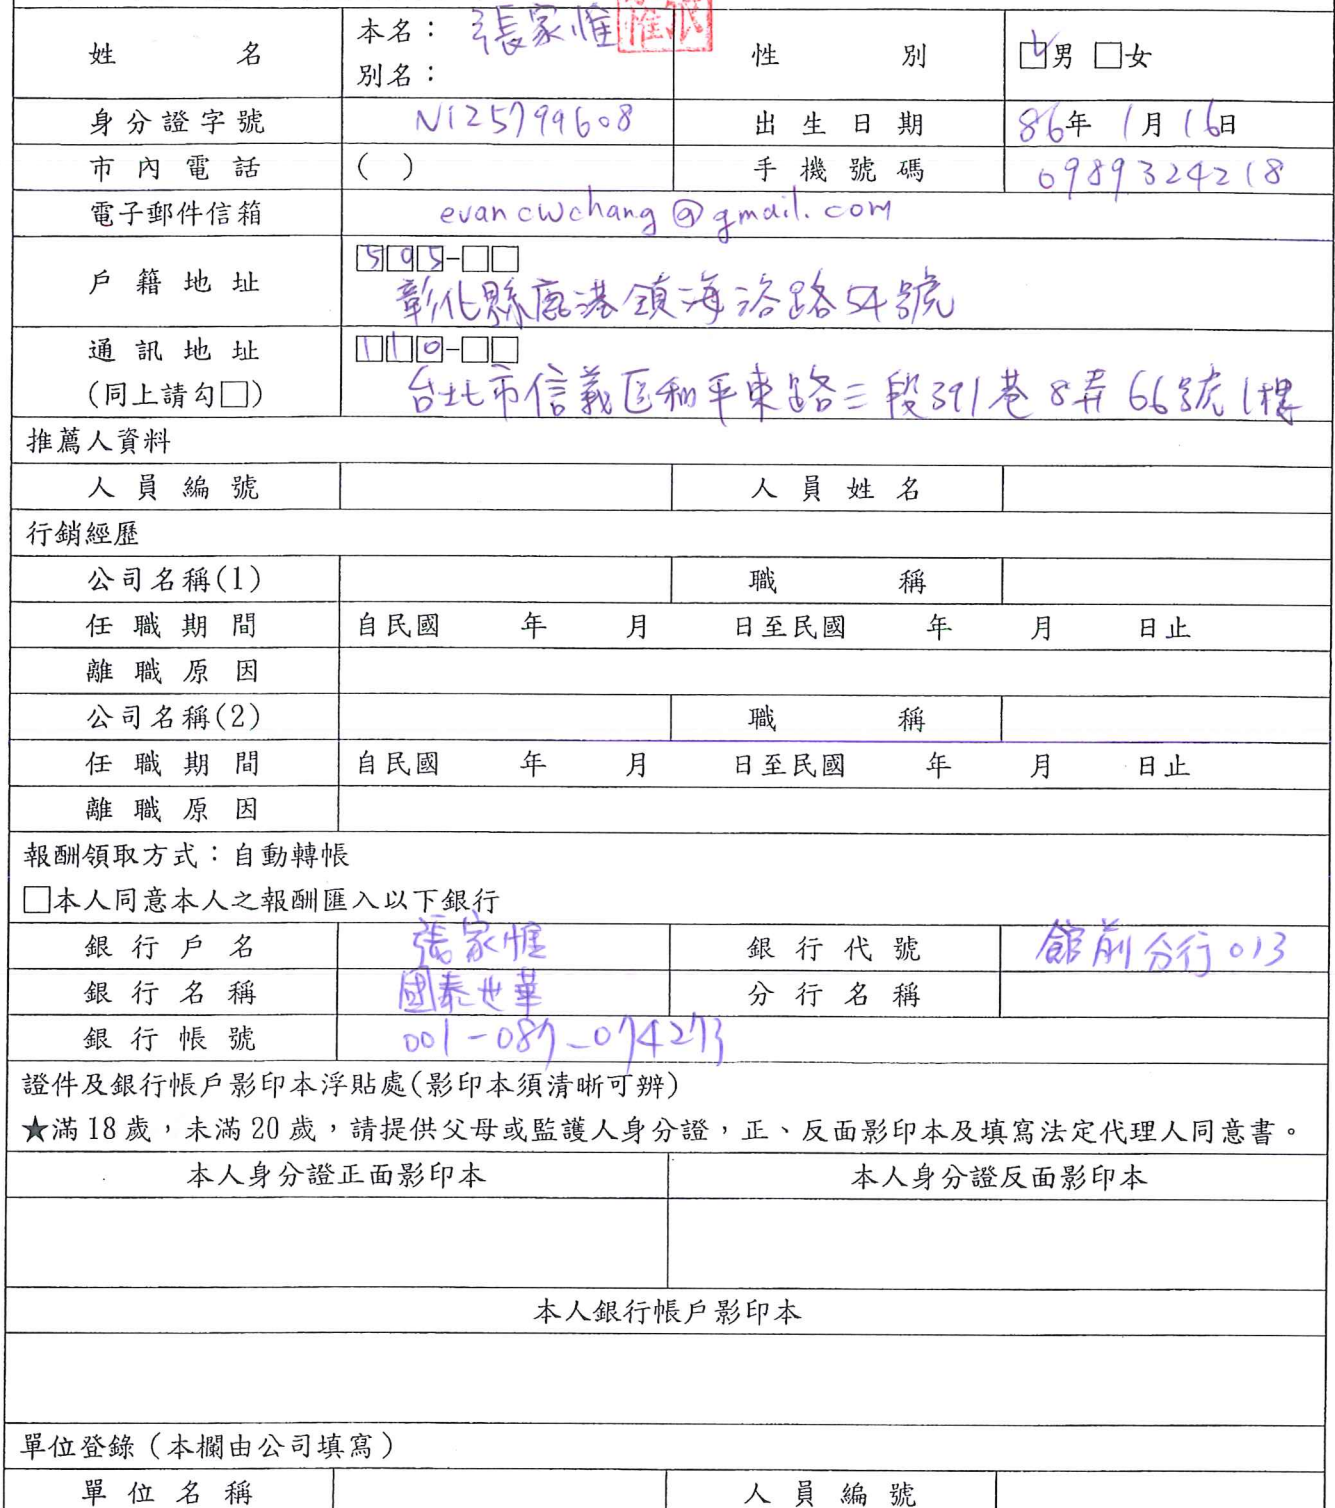 姓名 本名：張家惟 性別 ☑男 □女
別名：
身分證字號 N125799608 出生日期 86年1月16日
市內電話 ( ) 手機號碼 0989324218
電子郵件信箱 evancwchang@gmail.com
戶籍地址 505-□□
彰化縣鹿港鎮海浴路54號
通訊地址 110-□□
(同上請勾□) 台北市信義區和平東路三段391巷8弄66號1樓
推薦人資料
人員編號 人員姓名
行銷經歷
公司名稱(1) 職稱
任職期間 自民國 年 月 日至民國 年 月 日止
離職原因
公司名稱(2) 職稱
任職期間 自民國 年 月 日至民國 年 月 日止
離職原因
報酬領取方式：自動轉帳
□本人同意本人之報酬匯入以下銀行
銀行戶名 張家惟 銀行代號 館前分行013
銀行名稱 國泰世華 分行名稱
銀行帳號 001-087-074273
證件及銀行帳戶影印本浮貼處(影印本須清晰可辨)
★滿18歲，未滿20歲，請提供父母或監護人身分證，正、反面影印本及填寫法定代理人同意書。
本人身分證正面影印本 本人身分證反面影印本
本人銀行帳戶影印本
單位登錄（本欄由公司填寫）
單位名稱 人員編號